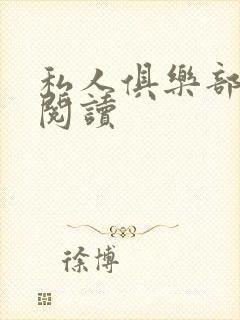 私人俱樂部
閱讀
徐博